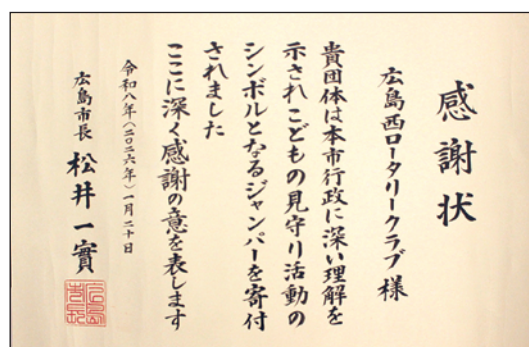 感謝状
広島西ロータリークラブ様
貴団体は本市行政に深い理解を
示されこどもの見守り活動の
シンボルとなるジャンパーを寄付
されました
ここに深く感謝の意を表します
令和八年(二〇二六年)一月二十日
広島市長 松井一實
広島市長